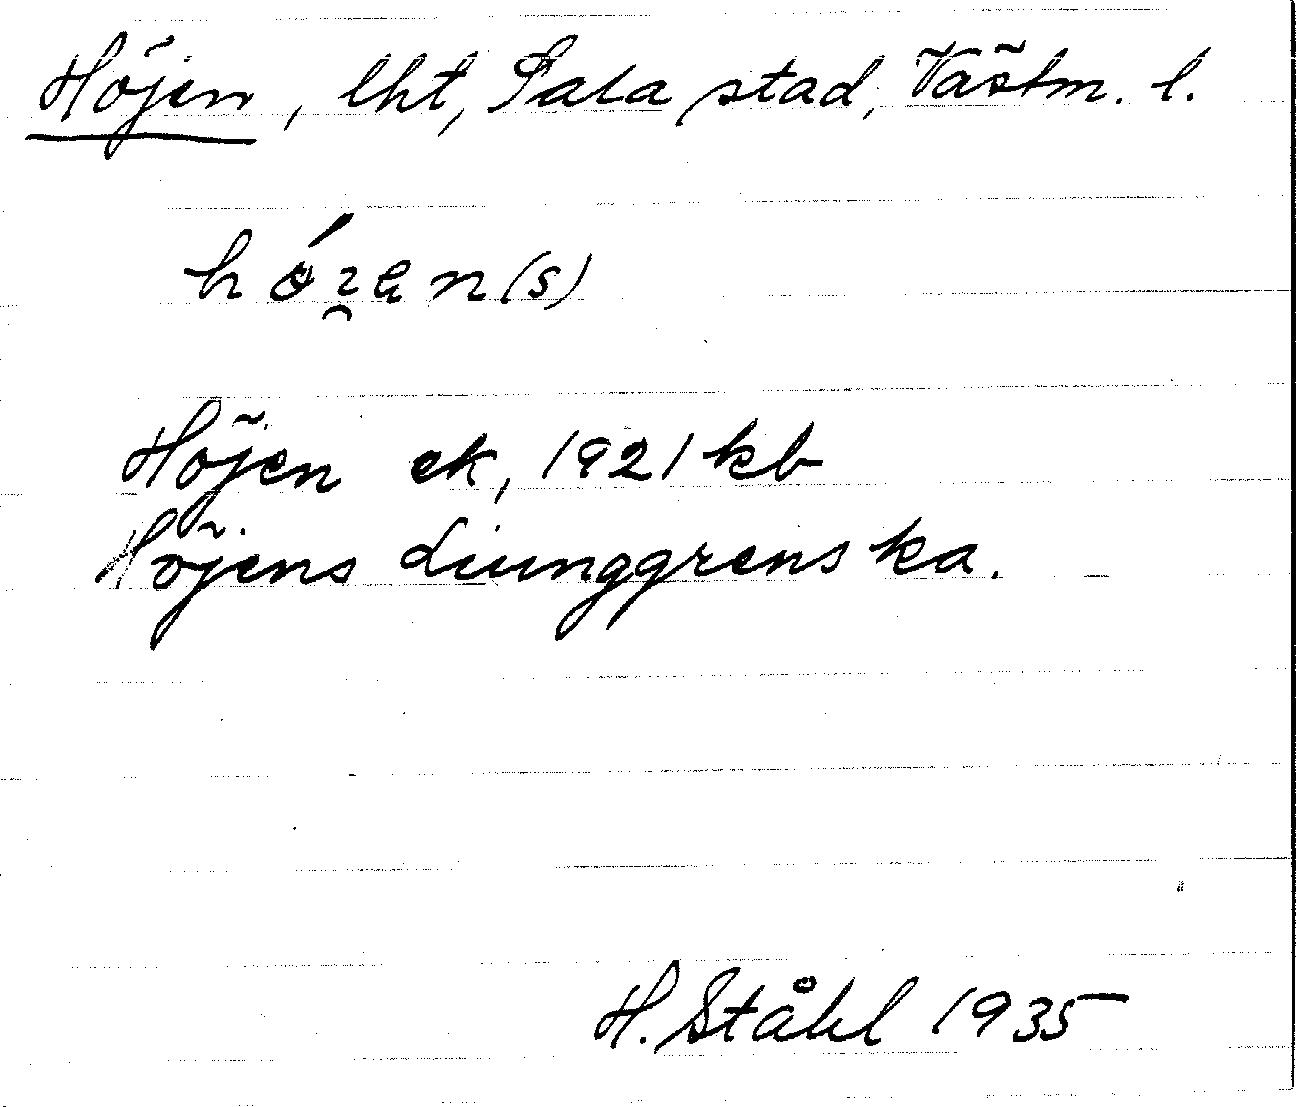 Höjen, lht, Sala stad, Västm. l.
Höjen ek, 1921 kb
Höjens Liunggrenska.
H. Ståhl 1935